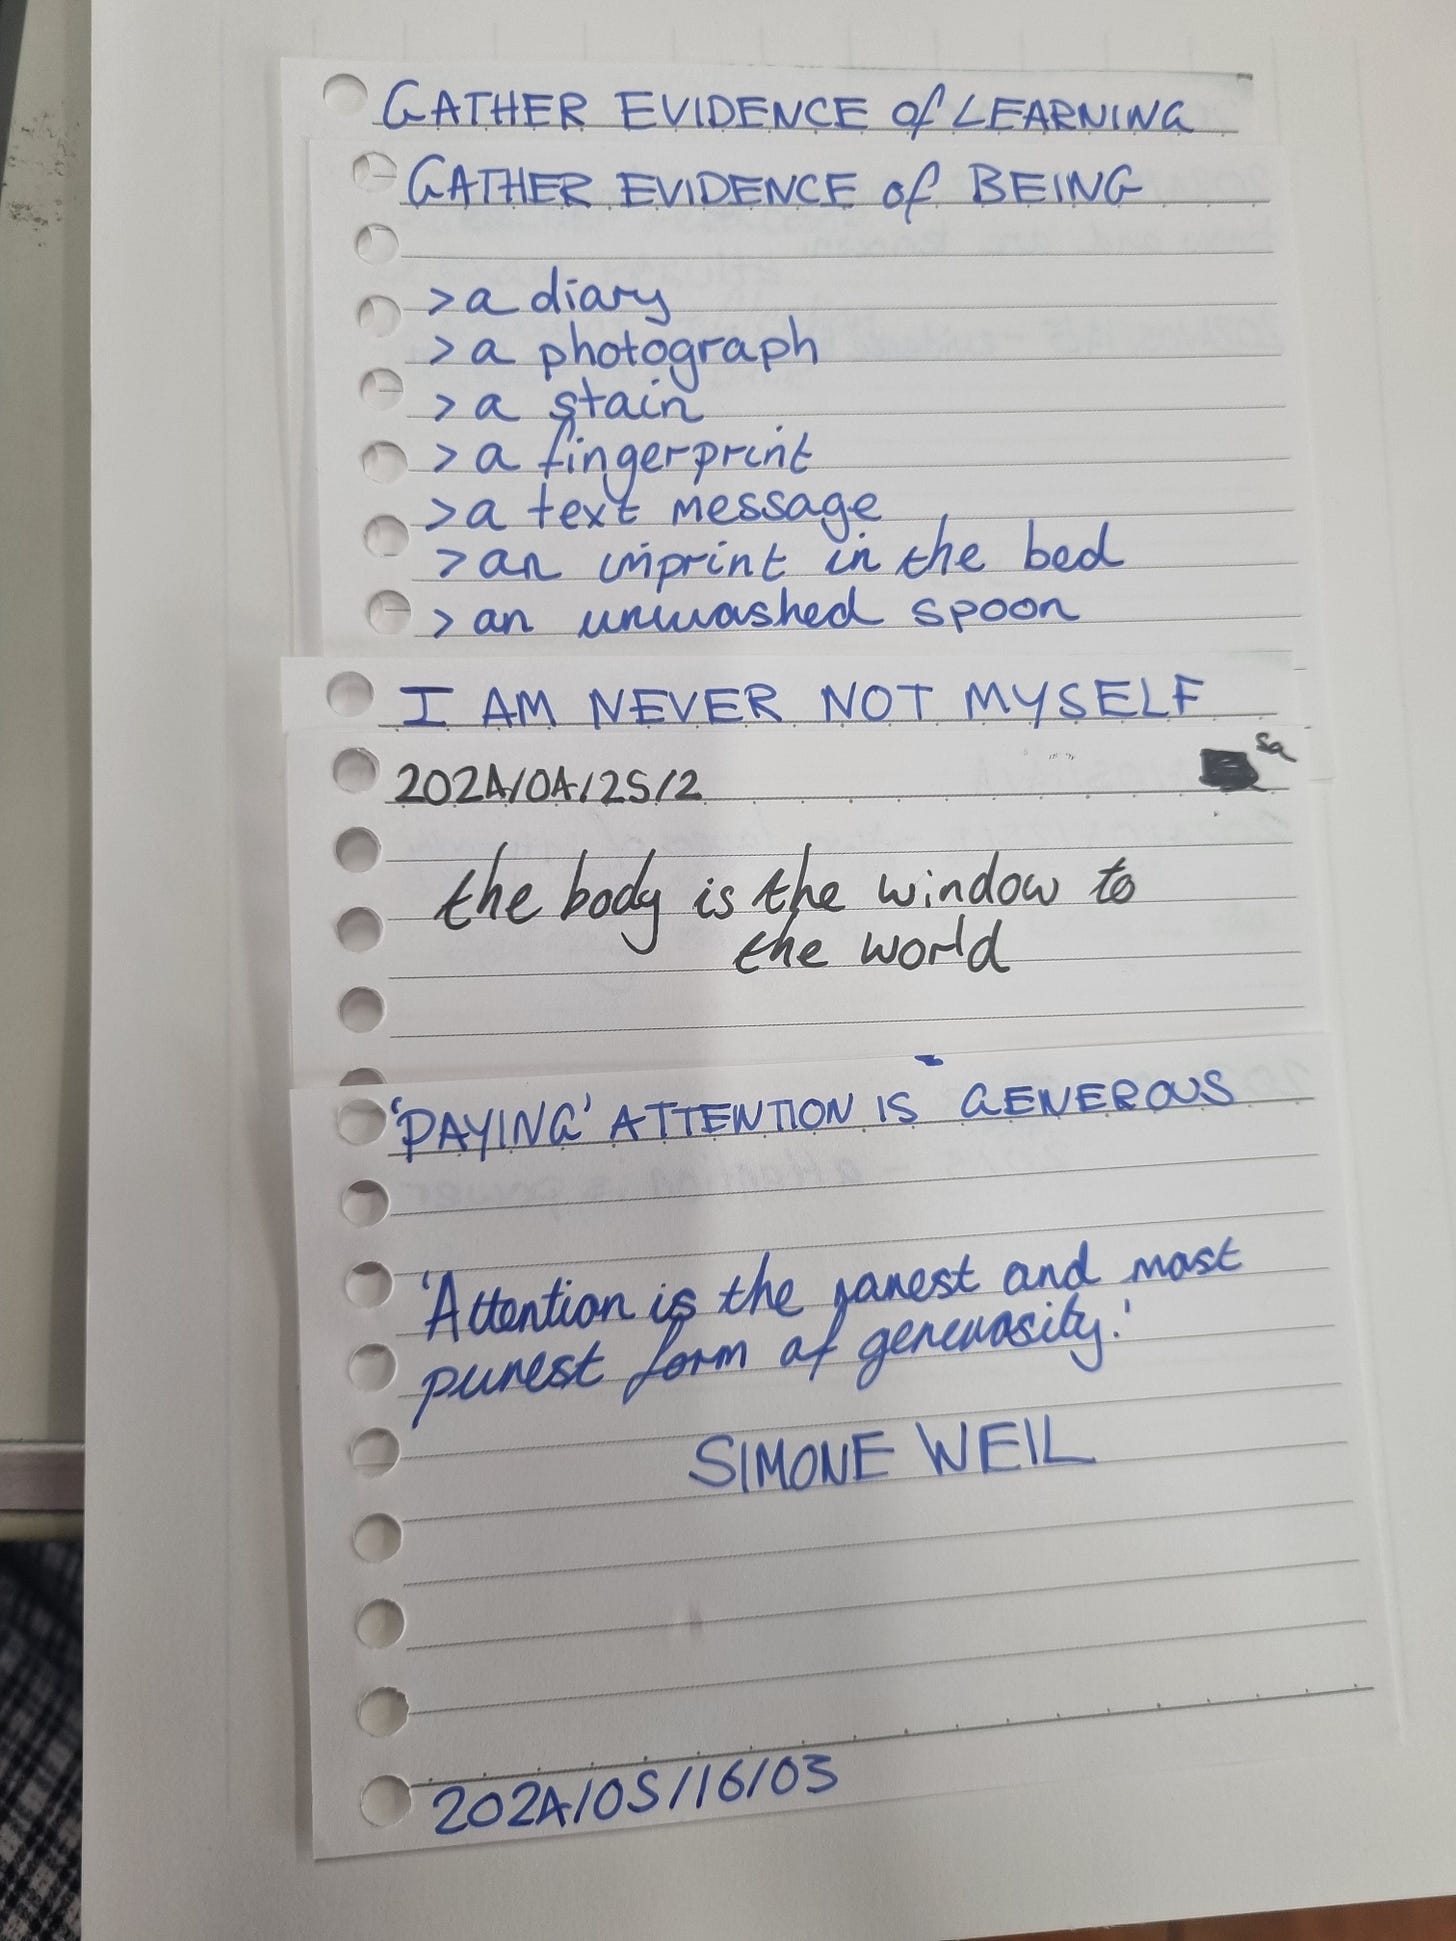 GATHER EVIDENCE of LEARNING
GATHER EVIDENCE of BEING
> a diary
> a photograph
> a stain
> a fingerprint
> a text message
> an imprint in the bed
> an unwashed spoon
I AM NEVER NOT MYSELF
2024/04/25/2
5a
the body is the window to
the world
'PAYING' ATTENTION IS GENEROUS
'Attention is the rarest and most
purest form of generosity.'
SIMONE WEIL
2024/05/16/03